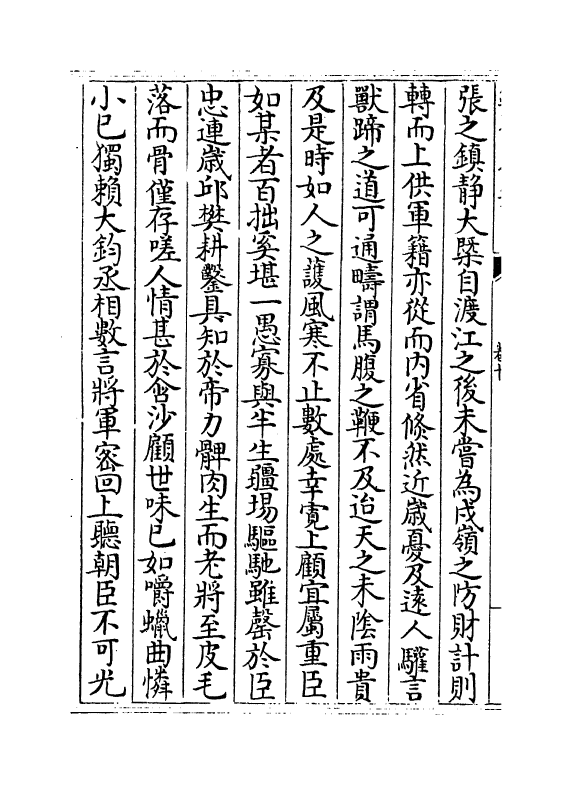 張之鎮靜大槩自渡江之後未嘗為戍嶺之防財計則
轉而上供軍籍亦從而内省倏然近歲憂及遠人驩言
獸蹄之道可通疇謂馬腹之鞭不及迨天之未陰雨貴
及是時如人之護風寒不止數處幸寛上顧宜屬重臣
如某者百拙奚堪一愚寡與半生疆場驅馳雖罄於臣
忠連歲邱樊耕鑿具知於帝力髀肉生而老將至皮毛
落而骨僅存嗟人情甚於含沙顧世味已如嚼蠟曲憐
小已獨賴大鈞丞相數言將軍密回上聽朝臣不可光
卷十